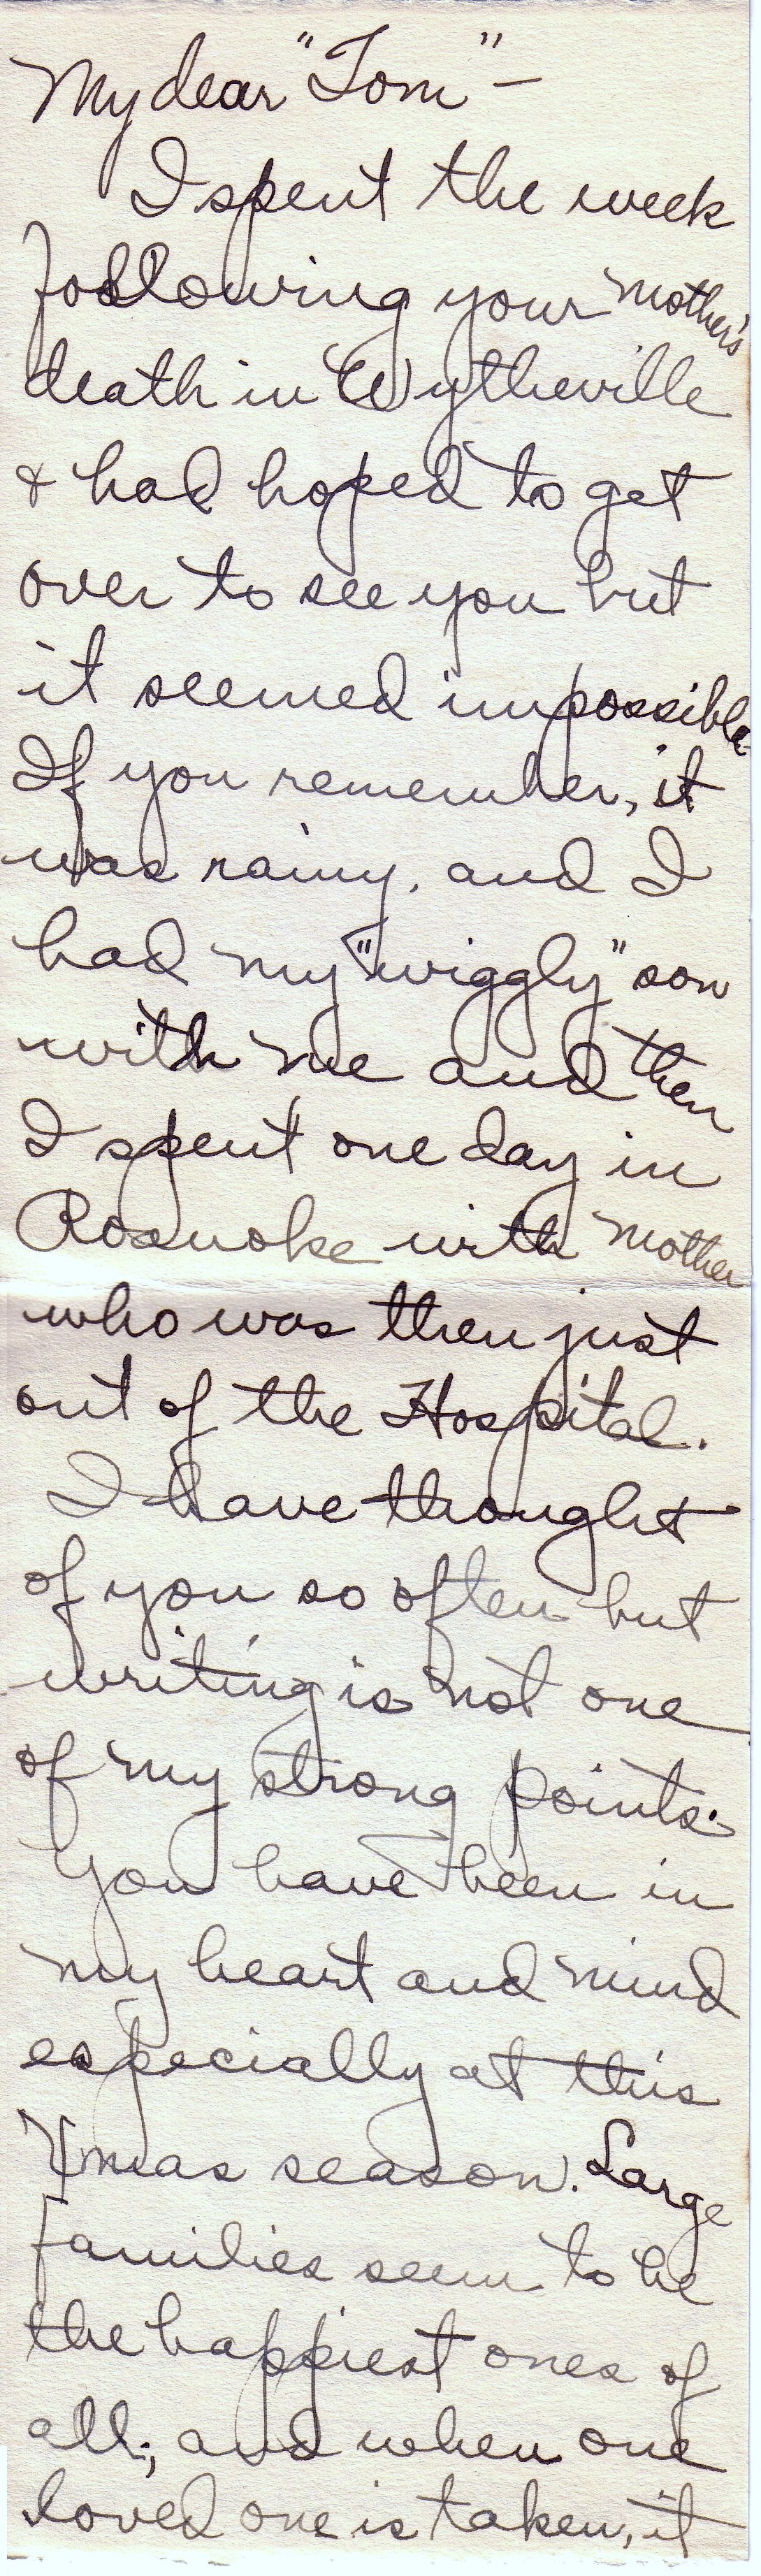 My dear "Tom" —
I spent the week
following your Mother's
death in Wytheville
& had hoped to get
over to see you but
it seemed impossible.
If you remember, it
was rainy, and I
had my "wiggly" son
with me and then
I spent one day in
Roanoke with Mother
who was then just
out of the Hospital.
I have thought
of you so often but
writing is not one
of my strong points.
You have been in
my heart and mind
especially at this
Xmas season. Large
families seem to be
the happiest ones of
all; and when one
loved one is taken, it